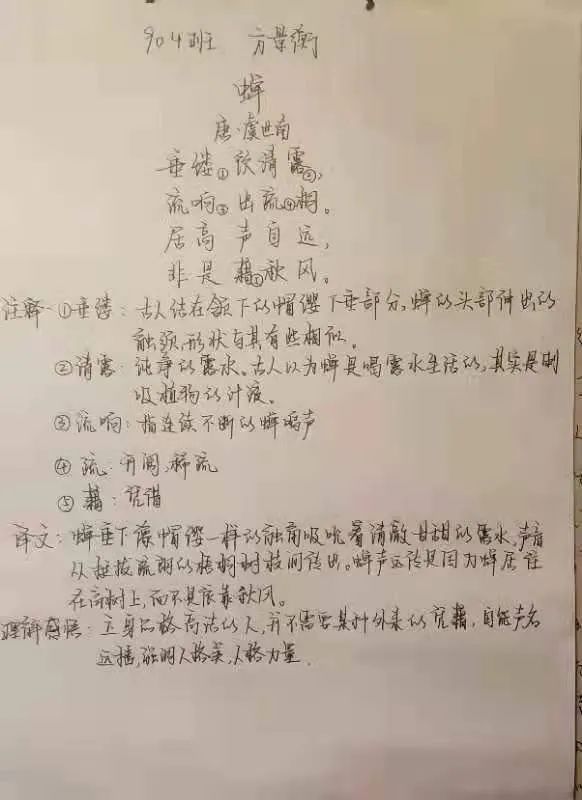 904班 方景衡
蝉
唐·虞世南
垂缕①饮清露②,
流响③出疏④桐。
居高声自远,
非是藉⑤秋风。
注释:①垂缕:古人结在领下的帽缨下垂部分,蝉的头部伸出的
触须,形状与其有些相似。
②清露:纯净的露水。古人以为蝉是喝露水生活的,其实是刺
吸植物的汁液。
③流响:指连续不断的蝉鸣声
④疏:开阔,稀疏
⑤藉:凭借
译文:蝉垂下像帽缨一样的触角吸吮着清澈甘甜的露水,声音
从挺拔疏朗的梧桐树枝间传出。蝉声远传是因为蝉居住
在高树上,而不是依靠秋风。
理解感悟:立身品格高洁的人,并不需要某种外来的凭藉,自能声名
远播,强调人格美,人格力量.